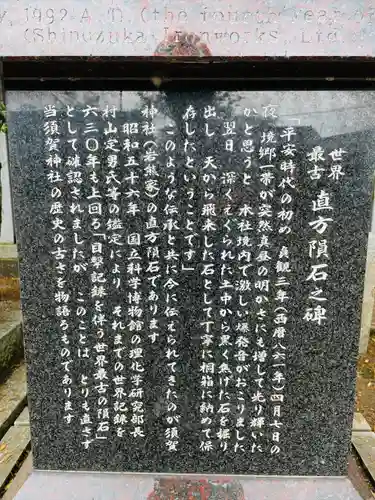 , 1992 A. D. (the fourth year of
(Shinozuka Ironworks, Ltd.
世界
最古 直方隕石之碑
「平安時代の初め 貞観三年（西暦八六一年）四月七日の
夜 境郷一帯が突然真昼の明かさにも増して光り輝いた
かと思うと 本社境内で激しい爆発音がおこりました
翌日 深くえぐられた土中から黒く焦げた石を掘り
出し 天から飛来した石として丁寧に桐箱に納めて保
存したということです」
このような伝承と共に今に伝えられてきたのが須賀
神社（岩熊家）の直方隕石であります
昭和五十六年 国立科学博物館の理化学研究部長
村山定男氏等の鑑定により それまでの世界記録を
六三〇年も上回る「目撃記録を伴う世界最古の隕石」
として確認されましたが このことは とりも直さず
当須賀神社の歴史の古さを物語るものであります